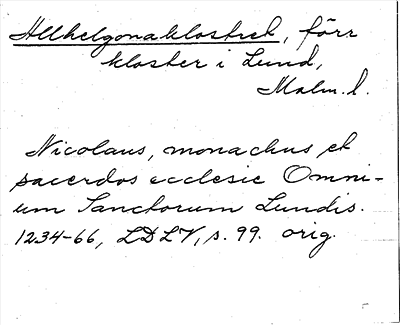 Allhelgonaklostret, förr
kloster i Lund,
Malm. l.
Nicolaus, monachus et
sacerdos ecclesie Omni-
um Sanctorum Lundis.
1234-66, LDLV, s. 99. orig.